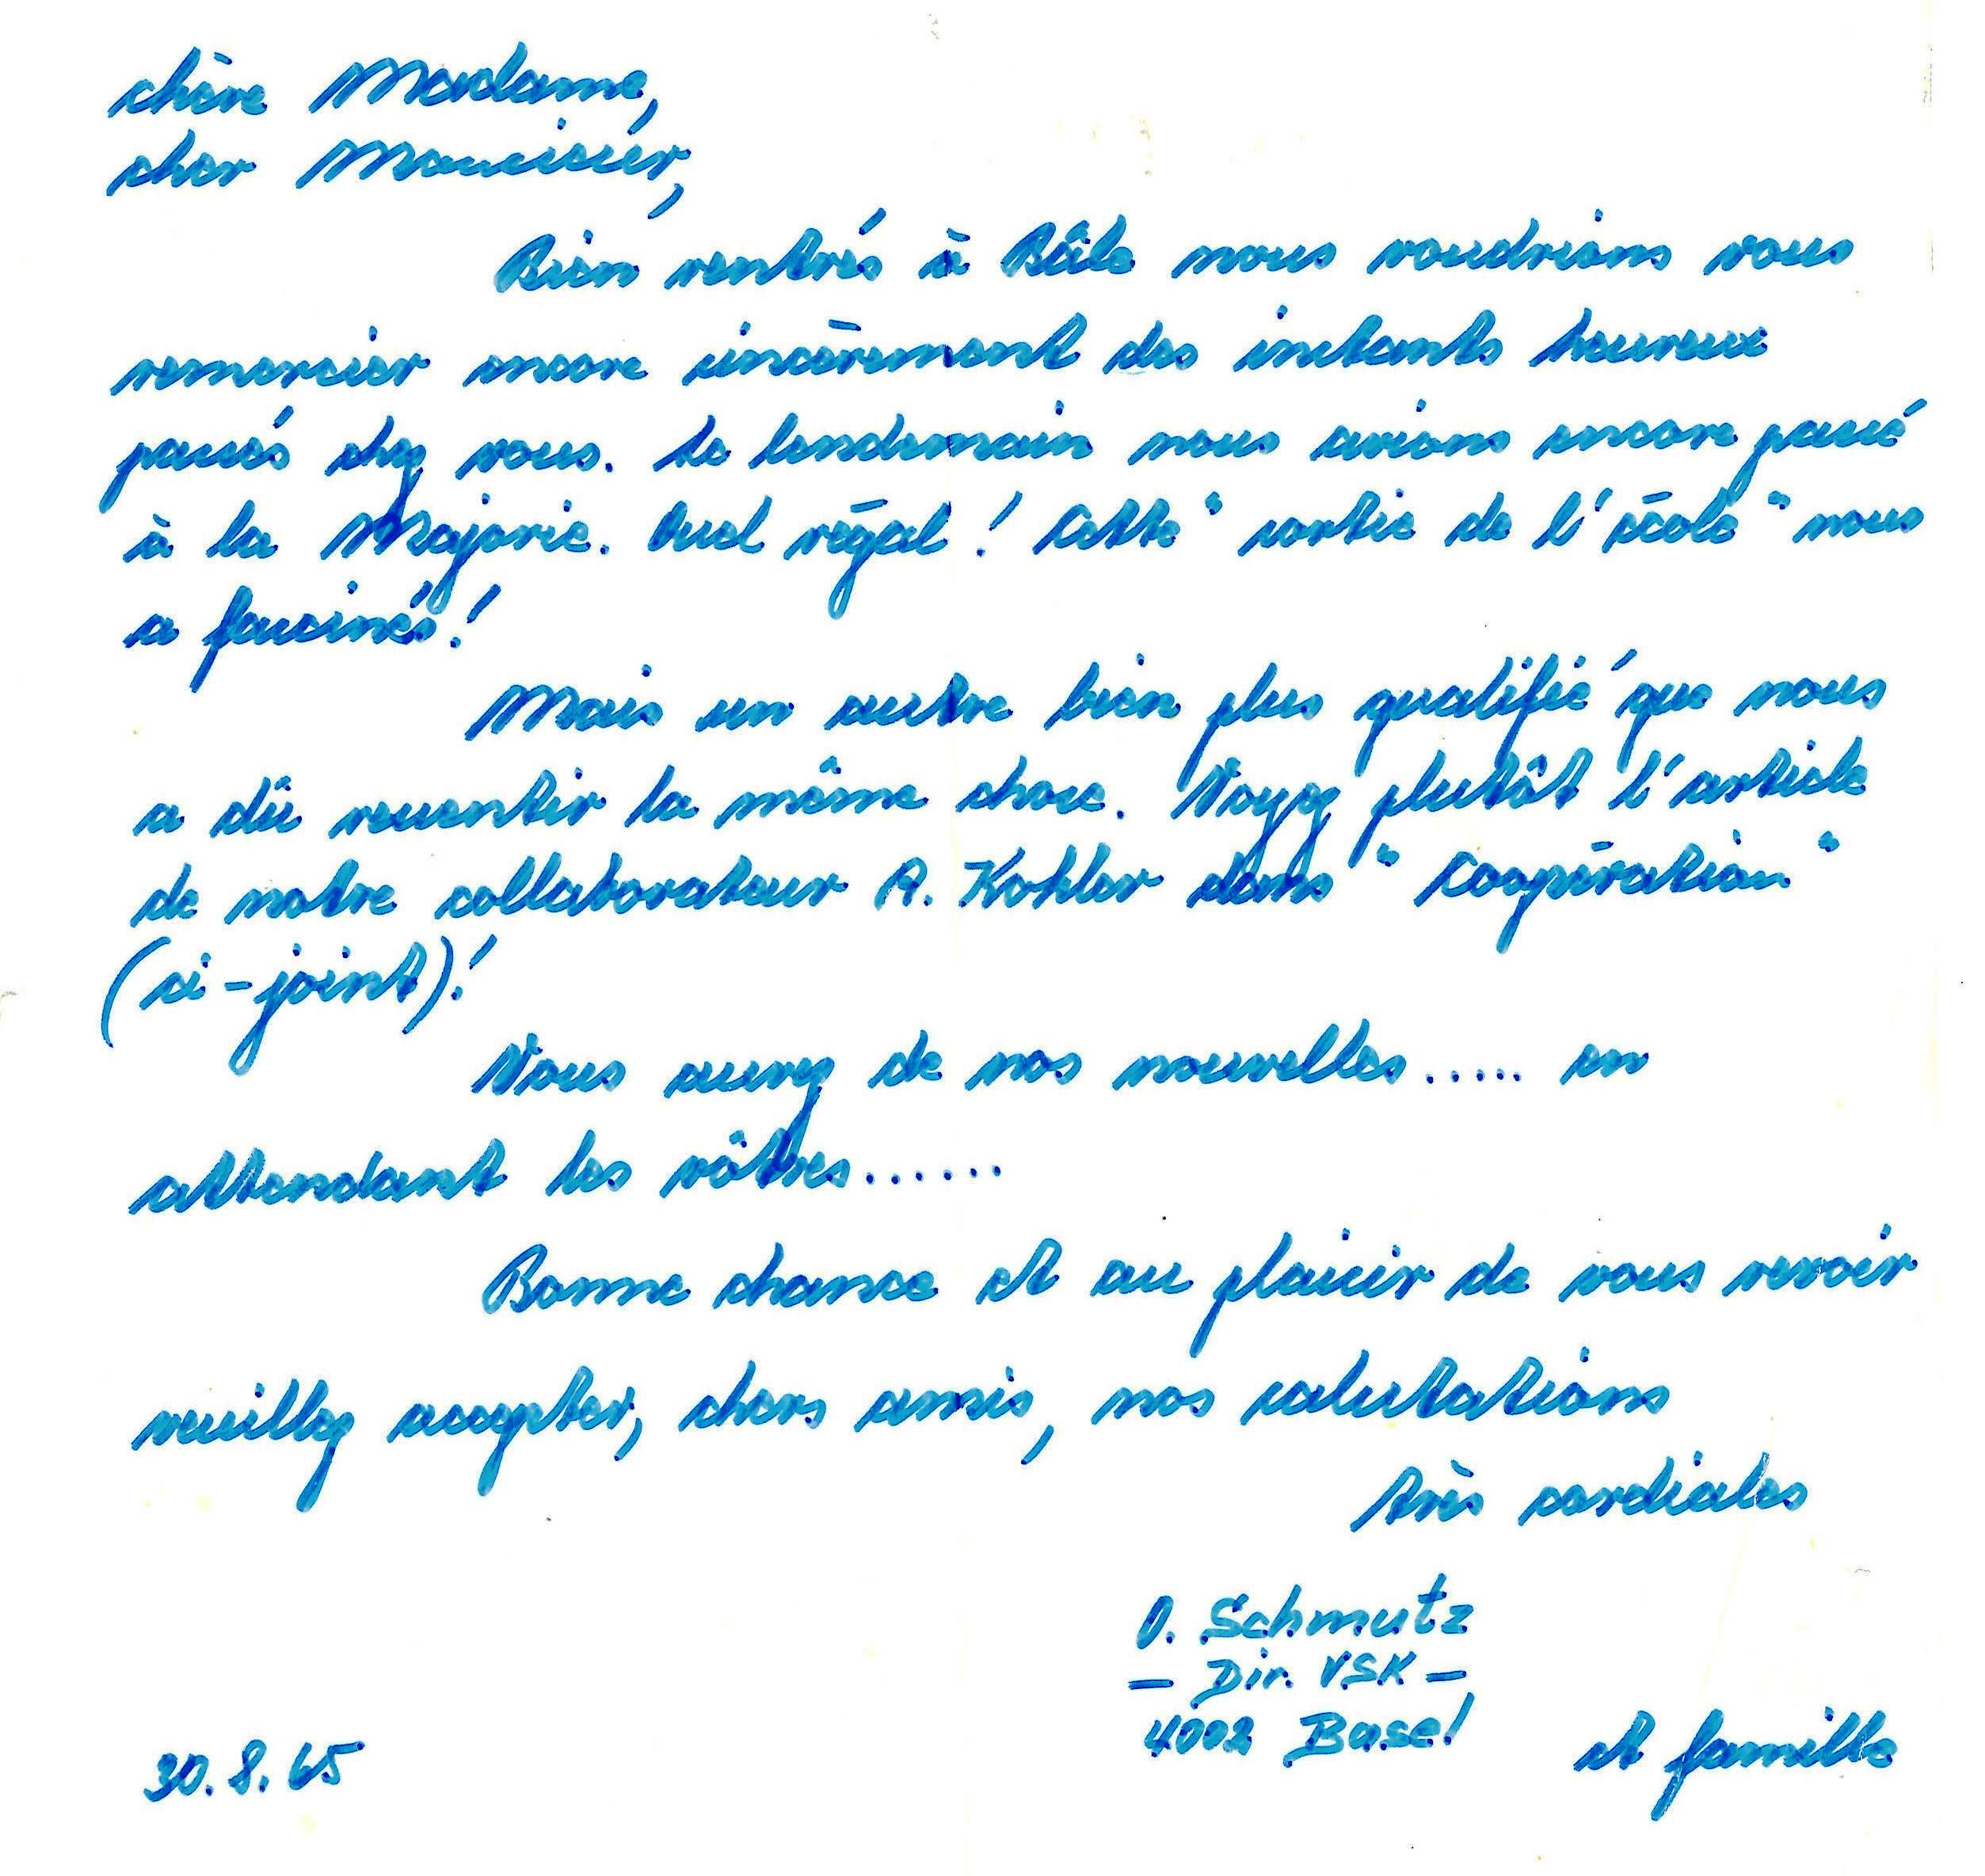 chère Madame,
cher Monsieur,
Bien rentrés à Bâle nous voudrions vous
remercier encore sincèrement des instants heureux
passés chez vous. Le lendemain nous avions encore passé
à la Majorie. Quel régal! Cette "sortie de l'école" nous
a fascinés!
Mais un autre bien plus qualifié que nous
a dû ressentir la même chose. Voyez plutôt l'article
de notre collaborateur A. Kohler dans "Coopération"
(ci-joint)!
Vous aurez de nos nouvelles..... en
attendant les vôtres.......
Bonne chance et au plaisir de vous revoir
veuillez accepter, chers amis, nos salutations
très cordiales
O. Schmutz
- Dir. VSK -
4002 Basel
et famille
30.8.65